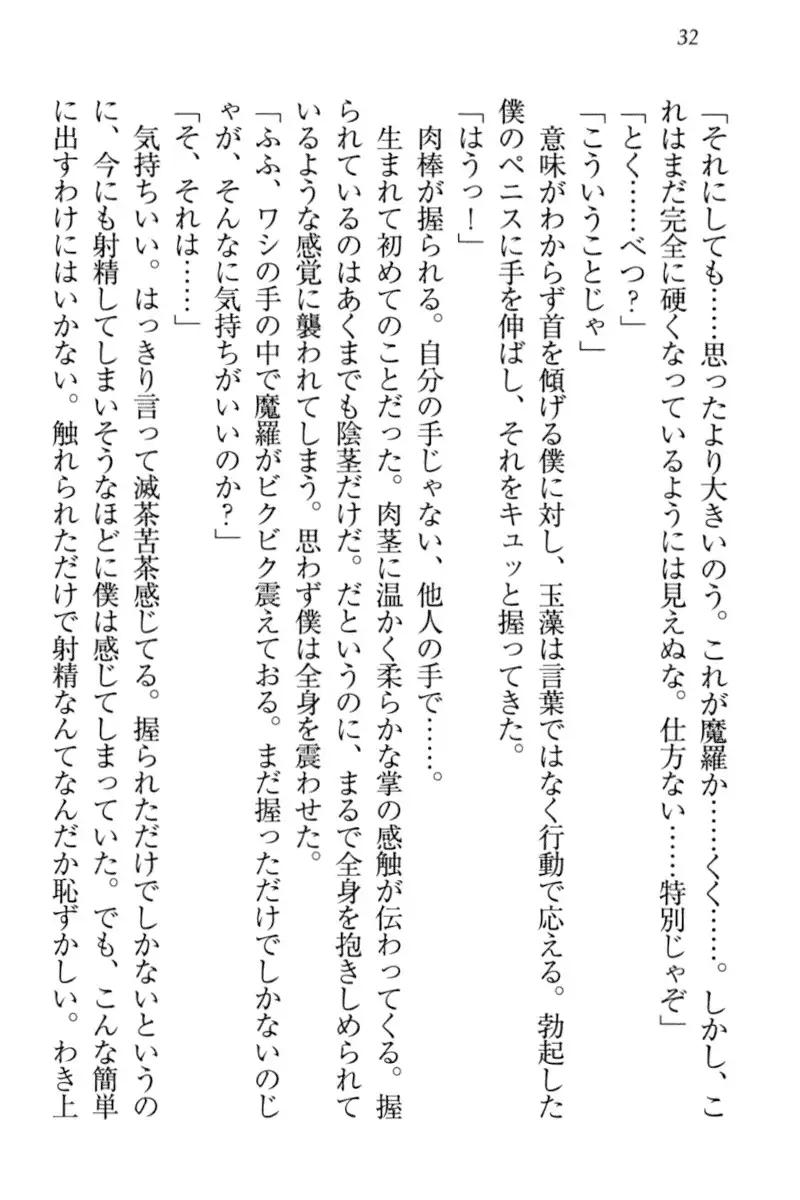 32
「それにしても……思ったより大きいのう。これが魔羅か……くく……。しかし、こ
れはまだ完全に硬くなっているようには見えぬな。仕方ない……特別じゃぞ」
「とく……べつ？」
「こういうことじゃ」
　意味がわからず首を傾げる僕に対し、玉藻は言葉ではなく行動で応える。勃起した
僕のペニスに手を伸ばし、それをキュッと握ってきた。
「はうっ！」
　肉棒が握られる。自分の手じゃない、他人の手で……。
　生まれて初めてのことだった。肉茎に温かく柔らかな掌の感触が伝わってくる。握
られているのはあくまでも陰茎だけだ。だというのに、まるで全身を抱きしめられて
いるような感覚に襲われてしまう。思わず僕は全身を震わせた。
「ふふ、ワシの手の中で魔羅がビクビク震えておる。まだ握っただけでしかないのじ
ゃが、そんなに気持ちがいいのか？」
「そ、それは……」
　気持ちいい。はっきり言って滅茶苦茶感じてる。握られただけでしかないというの
に、今にも射精してしまいそうなほどに僕は感じてしまっていた。でも、こんな簡単
に出すわけにはいかない。触れられただけで射精なんてなんだか恥ずかしい。わき上